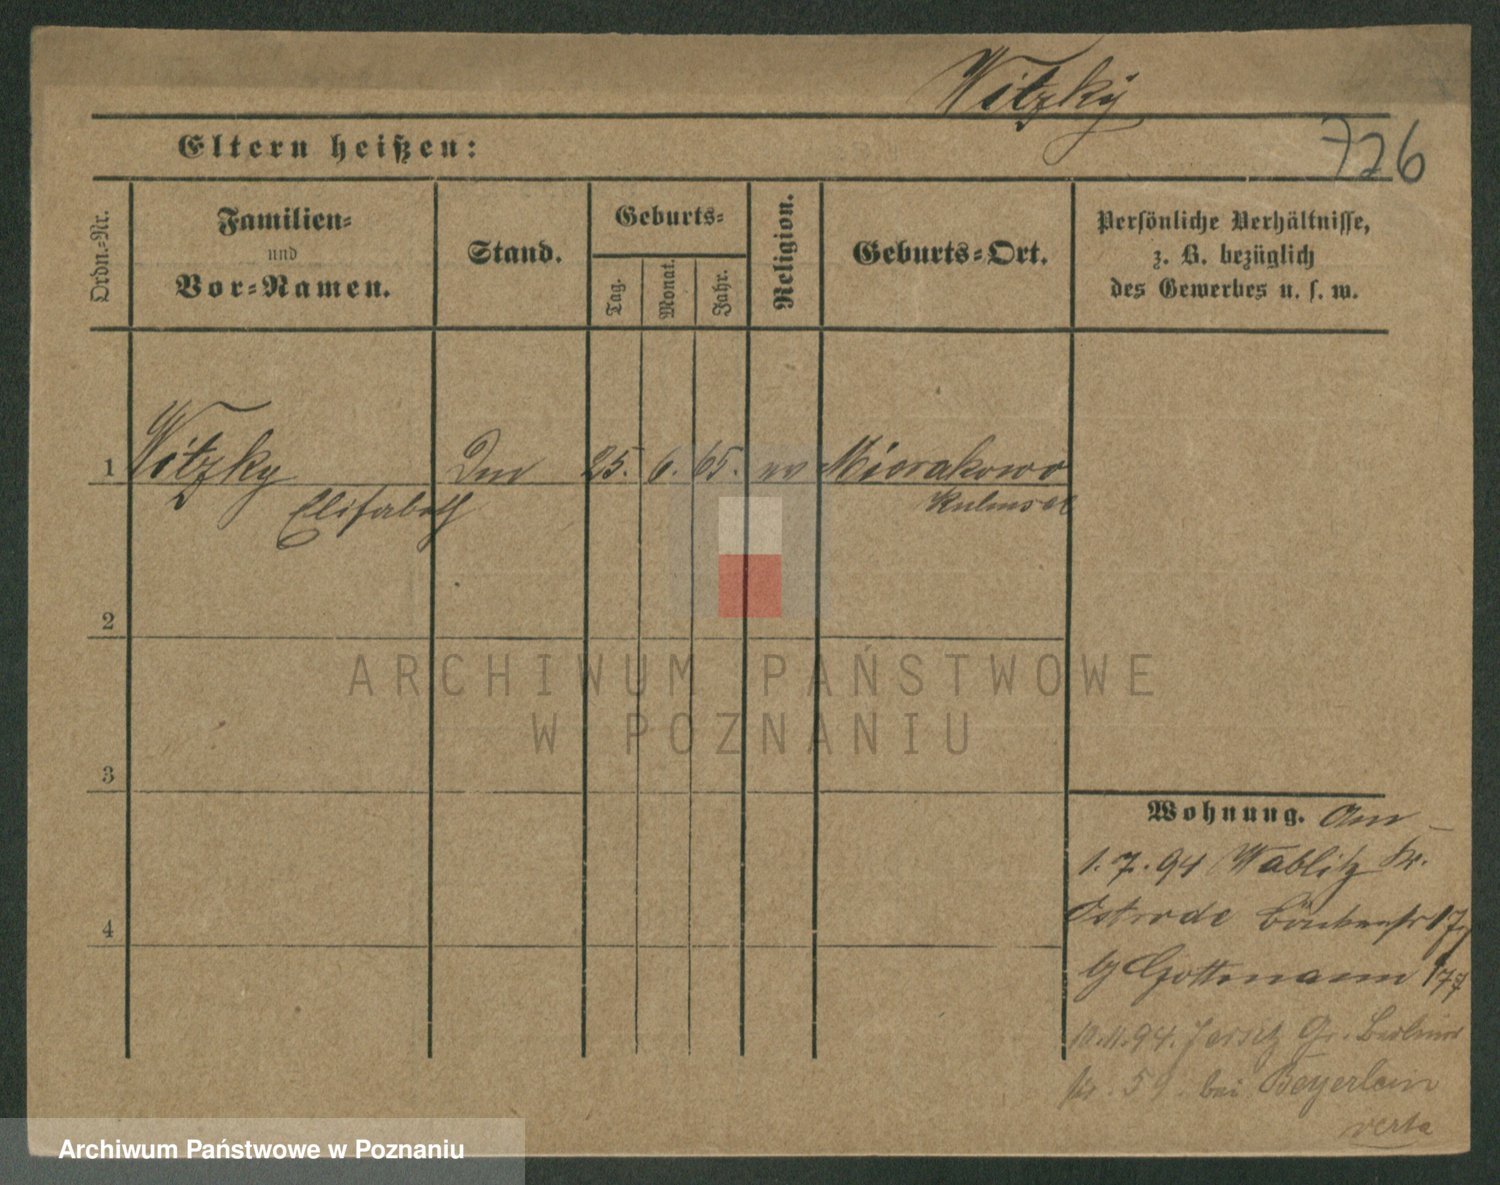 Witzky
726
Eltern heißen:
Ordn.=Nr.
Familien=
und
Vor=Namen.
Stand.
Geburts=
Tag.
Monat.
Jahr.
Religion.
Geburts=Ort.
Persönliche Verhältnisse,
z. B. bezüglich
des Gewerbes u. s. w.
1 Witzky 25. 6. 65. ev Mirakowo
Elisabeth Kulmsee
2
3
4
Wohnung. Am
1.7.94 Wablitz Kr.
Osterode 17
Gottmann 177
10.11.94. Jersitz Gr. Berliner
str. 59. bei Beyerlein
verte
ARCHIWUM PAŃSTWOWE
W POZNANIU
Archiwum Państwowe w Poznaniu